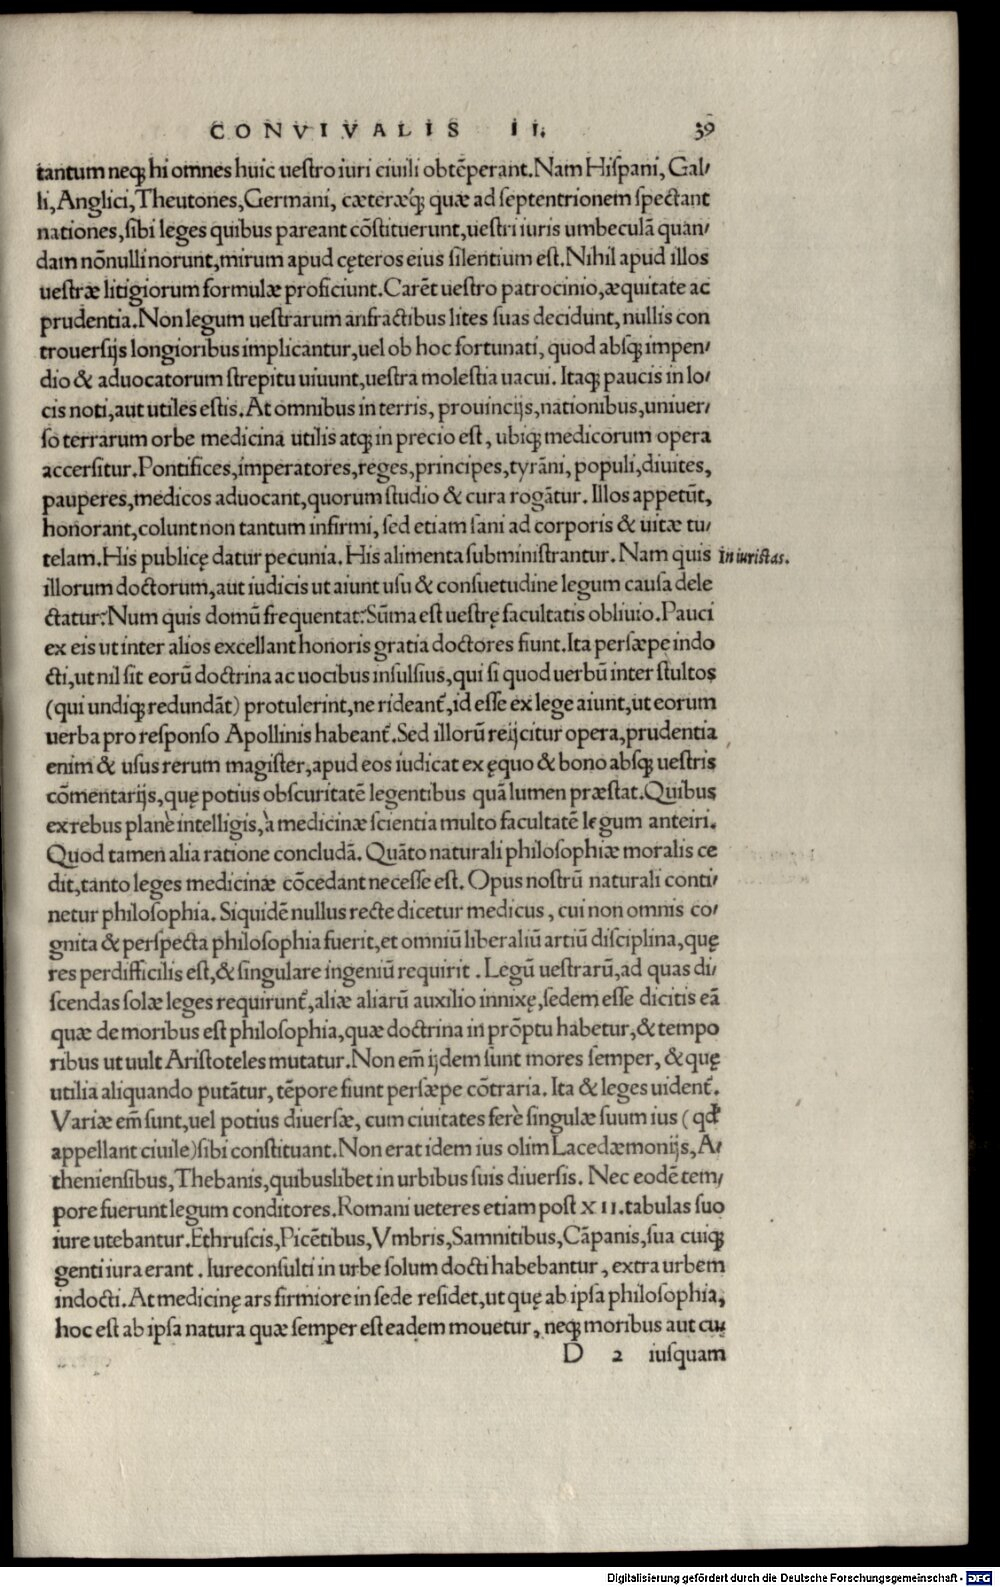 CONVIVALIS II. 39
tantum neqꝫ hi omnes huic uestro iuri ciuili obtēperant. Nam Hispani, Gal/
li, Anglici, Theutones, Germani, cæteræq́ꝫ quæ ad septentrionem spectant
nationes, sibi leges quibus pareant cōstituerunt, uestri iuris umbeculā quan/
dam nōnulli norunt, mirum apud cęteros eius silentium est. Nihil apud illos
uestræ litigiorum formulæ proficiunt. Carēt uestro patrocinio, æquitate ac
prudentia. Non legum uestrarum anfractibus lites suas decidunt, nullis con
trouersijs longioribus implicantur, uel ob hoc fortunati, quod absqꝫ impen/
dio & aduocatorum strepitu uiuunt, uestra molestia uacui. Itaqꝫ paucis in lo/
cis noti, aut utiles estis. At omnibus in terris, prouincijs, nationibus, uniuer/
so terrarum orbe medicina utilis atqꝫ in precio est, ubiqꝫ medicorum opera
accersitur. Pontifices, imperatores, reges, principes, tyrāni, populi, diuites,
pauperes, medicos aduocant, quorum studio & cura rogātur. Illos appetūt,
honorant, colunt non tantum infirmi, sed etiam sani ad corporis & uitæ tu/
telam. His publicę datur pecunia. His alimenta subministrantur. Nam quis
In iuristas.
illorum doctorum, aut iudicis ut aiunt usu & consuetudine legum causa dele
ctatur? Num quis domū frequentat? Sūma est uestrę facultatis obliuio. Pauci
ex eis ut inter alios excellant honoris gratia doctores fiunt. Ita persæpe indo
cti, ut nil sit eorū doctrina ac uocibus insulsius, qui si quod uerbū inter stultos
(qui undiqꝫ redundāt) protulerint, ne rideant᷒, id esse ex lege aiunt, ut eorum
uerba pro responso Apollinis habeant᷒. Sed illorū reijcitur opera, prudentia
enim & usus rerum magister, apud eos iudicat ex ęquo & bono absqꝫ uestris
cōmentarijs, quę potius obscuritatē legentibus quā lumen præstat. Quibus
ex rebus planè intelligis, à medicinæ scientia multo facultatē legum anteiri.
Quod tamen alia ratione concludā. Quāto naturali philosophiæ moralis ce
dit, tanto leges medicinæ cōcedant necesse est. Opus nostrū naturali conti/
netur philosophia. Siquidē nullus recte dicetur medicus, cui non omnis co/
gnita & perspecta philosophia fuerit, et omniū liberaliū artiū disciplina, quę
res perdifficilis est, & singulare ingeniū requirit. Legū uestrarū, ad quas di/
scendas solæ leges requirunt᷒, aliæ aliarū auxilio innixę, sedem esse dicitis eā
quæ de moribus est philosophia, quæ doctrina in prōptu habetur, & tempo
ribus ut uult Aristoteles mutatur. Non em̄ ijdem sunt mores semper, & quę
utilia aliquando putātur, tēpore fiunt persæpe cōtraria. Ita & leges uident᷒.
Variæ em̄ sunt, uel potius diuersæ, cum ciuitates ferè singulæ suum ius (qđ
appellant ciuile) sibi constituant. Non erat idem ius olim Lacedæmonijs, A/
theniensibus, Thebanis, quibuslibet in urbibus suis diuersis. Nec eodē tem/
pore fuerunt legum conditores. Romani ueteres etiam post XII. tabulas suo
iure utebantur. Ethruscis, Picētibus, Vmbris, Samnitibus, Cāpanis, sua cuiqꝫ
genti iura erant. Iureconsulti in urbe solum docti habebantur, extra urbem
indocti. At medicinę ars firmiore in sede residet, ut quę ab ipsa philosophia,
hoc est ab ipsa natura quæ semper est eadem mouetur, neqꝫ moribus aut cu/
D 2 iusquam
Digitalisierung gefördert durch die Deutsche Forschungsgemeinschaft - DFG